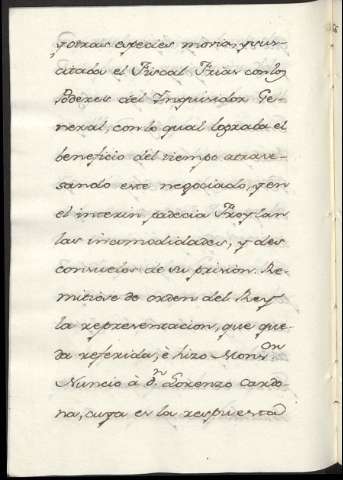 y otras especies movio, y sus-
citadas el Fiscal Frias con los
Poderes del Inquisidor Ge-
neral, con lo qual lograba el
beneficio del tiempo atrave-
sando este negociado, y en
el interin padecia Froylan
las incomodidades, y des
consuelos de su prision. Re-
mitiose de orden del Rey
la representacion, que que-
da referida, è hizo Mons.or
Nuncio à D.n Lorenzo Cardo-
na, cuya es la respuesta